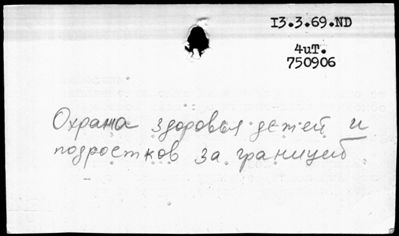 I3.3.69.ND
4uT.
750906
Охрана здоровья детей и
подростков за границей.